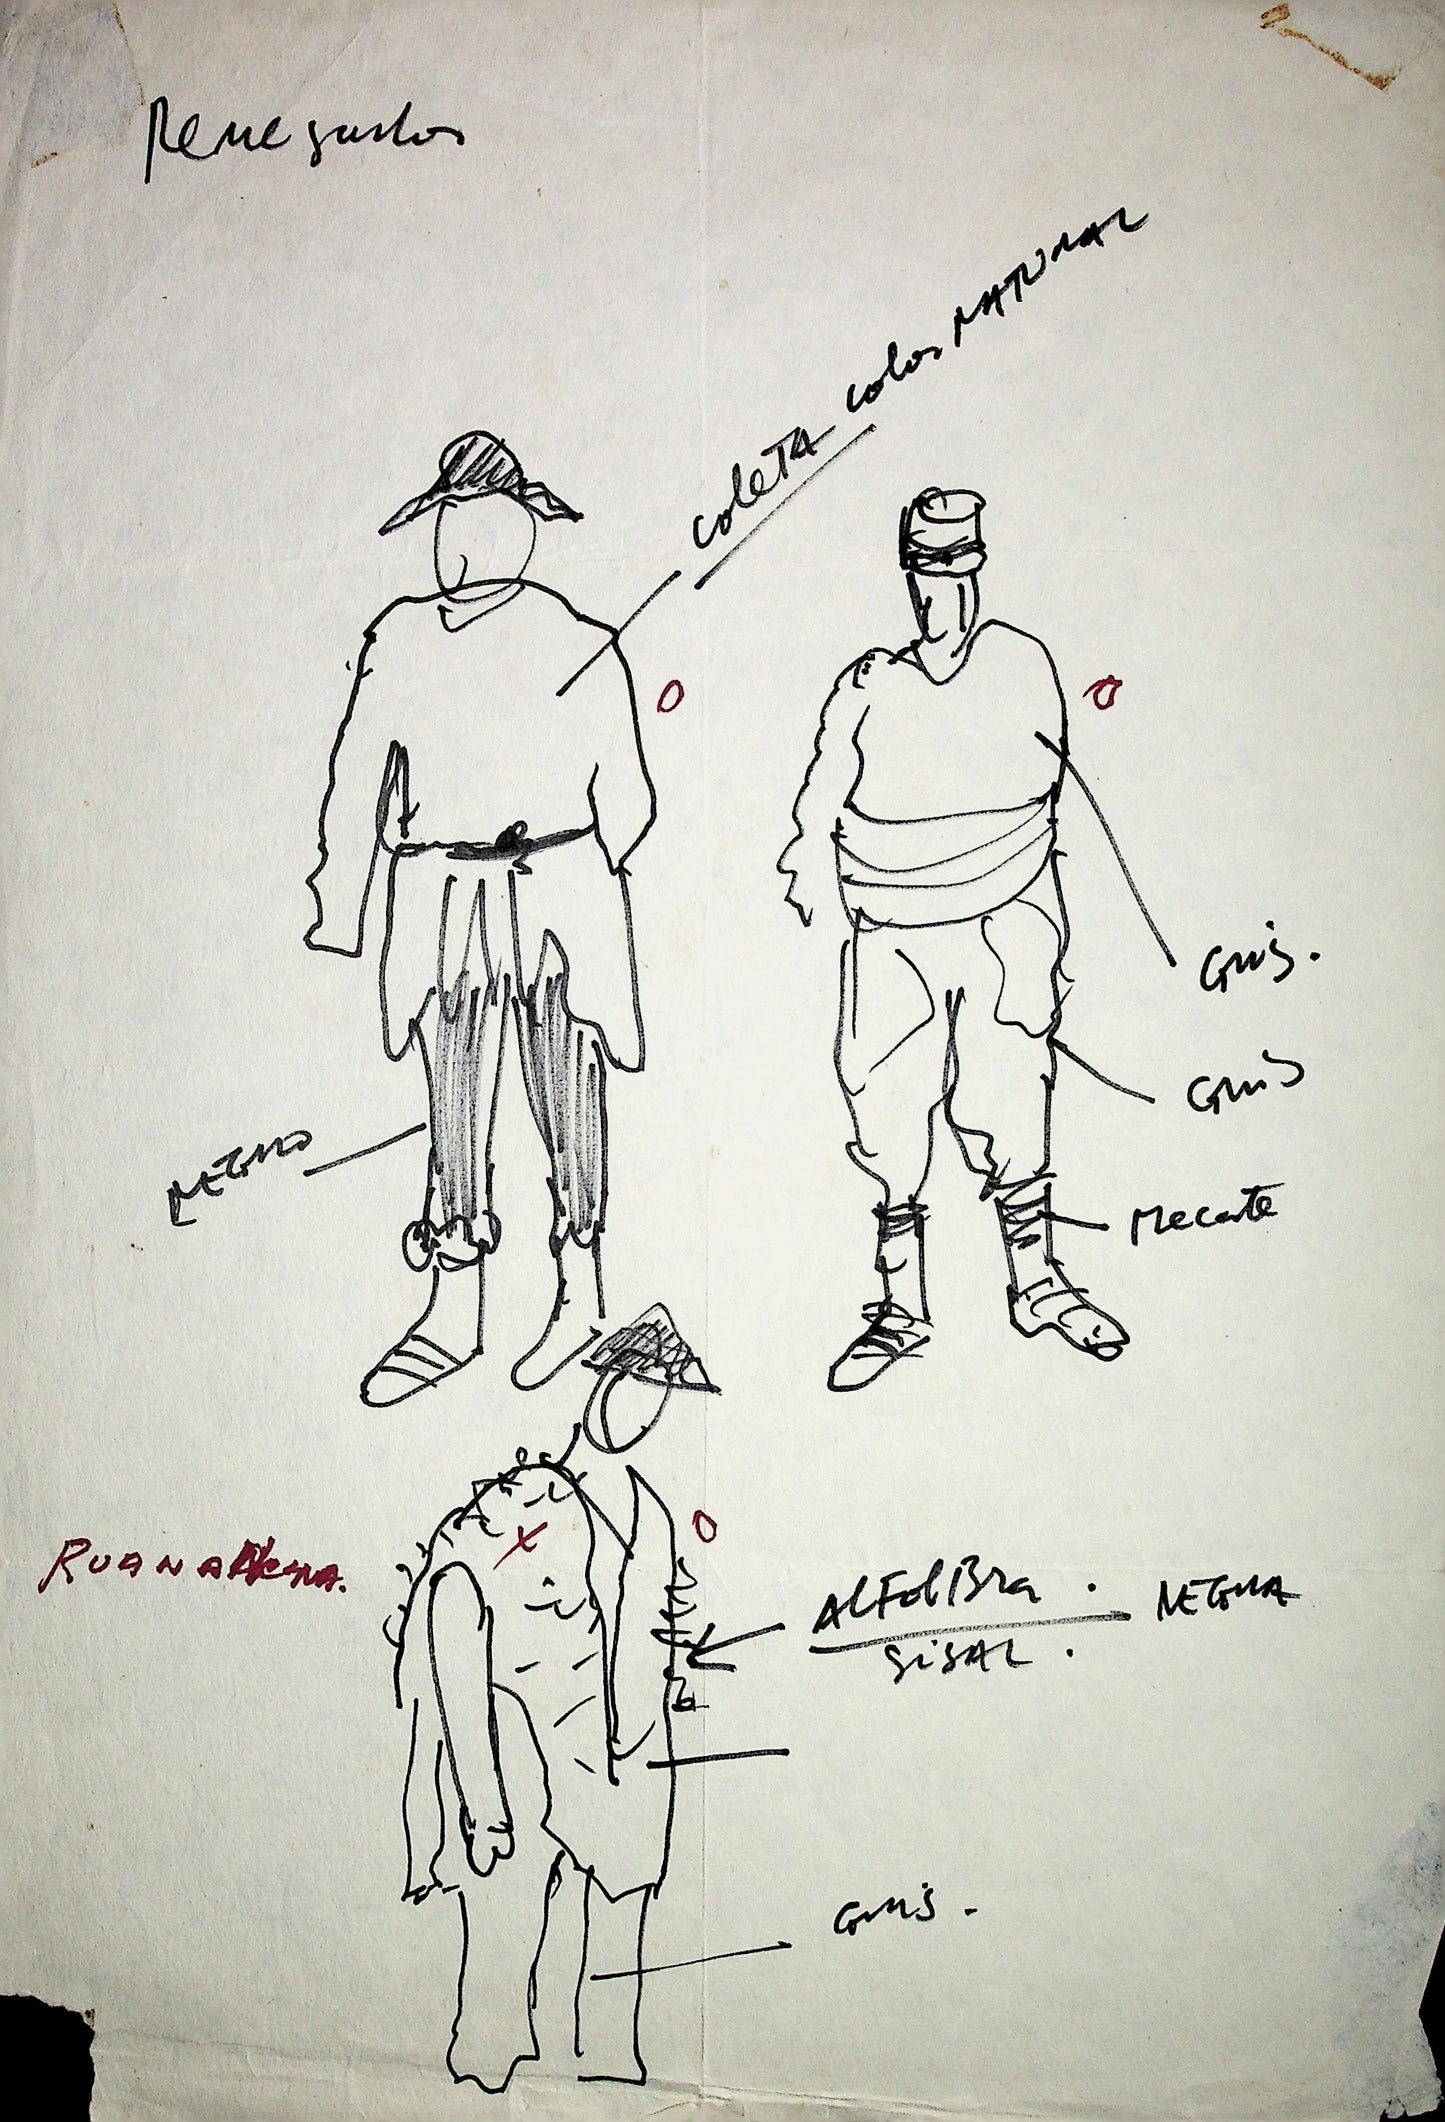 Renegados
COLETA COLOR NATURAL
GRIS.
GRIS
NEGRO
Mecate
RUANA NEGRA.
ALFOLBRA . NEGRA
SISAL .
GRIS .